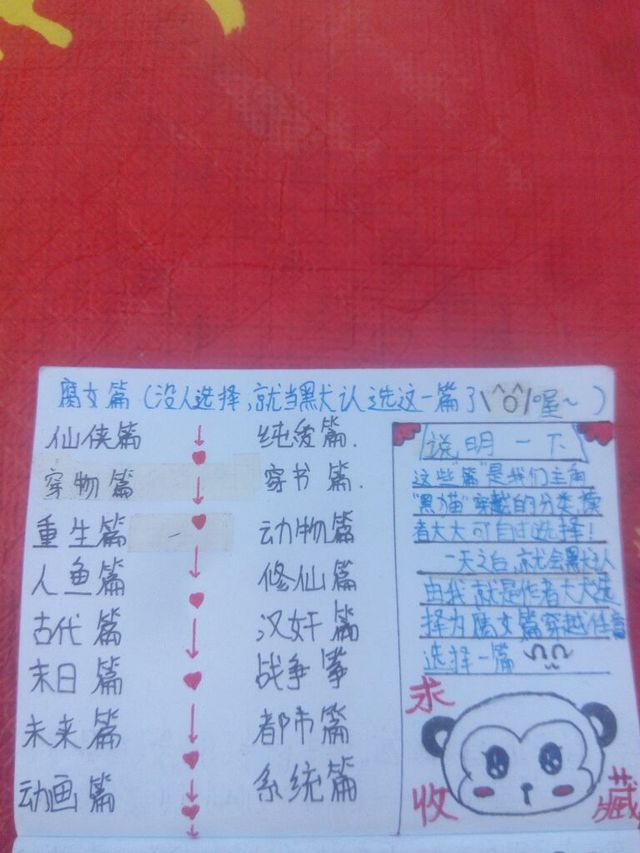 腐文篇（没人选择,就当黑犬认选这一篇了\^O^/喔~）
仙侠篇
穿物篇
重生篇
人鱼篇
古代篇
末日篇
未来篇
动画篇
纯爱篇.
穿书篇.
动物篇
修仙篇
汉奸篇
战争篇
都市篇
系统篇
说明一下
这些"篇"是我们主角
"黑猫"穿越的分类,读
者大大可自过选择!
一天之后,就会黑犬认
由我就是作者大大选
择为腐文篇穿越任意
选择一篇
求
收
藏